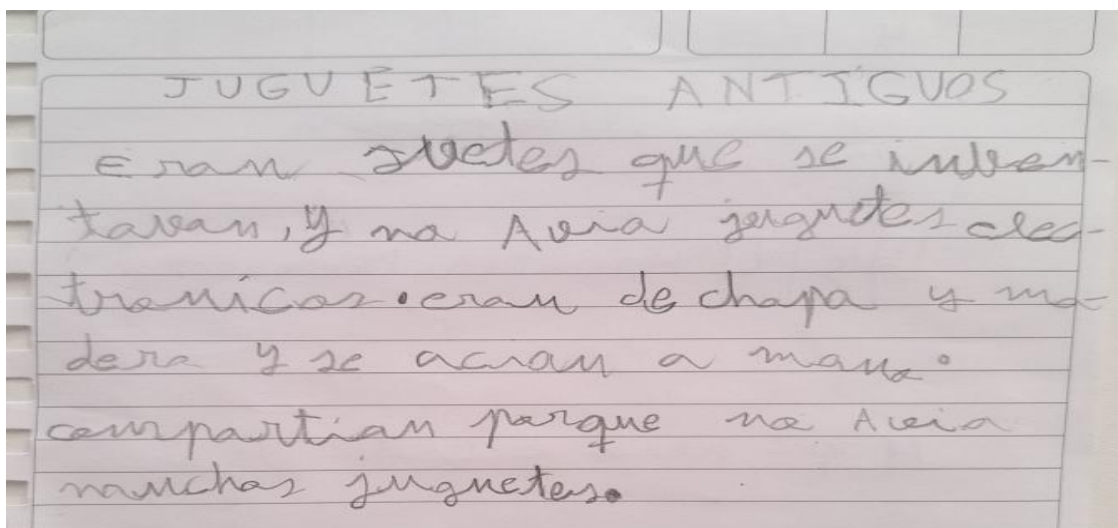 JUGUETES ANTIGUOS
Eran juetes que se inven-
tavan, y no Avia juguetes elec-
tronicos. eran de chapa y ma-
dera y se acian a mano.
compartian porque no Avia
muchos juguetes.